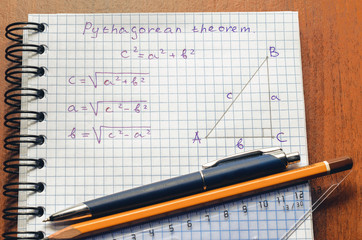 Pythagorean theorem.
c² = a² + b²
c = √a² + b²
a = √c² - b²
b = √c² - a²
B
c
a
A
b
C
7 8 9 10 11 12 13